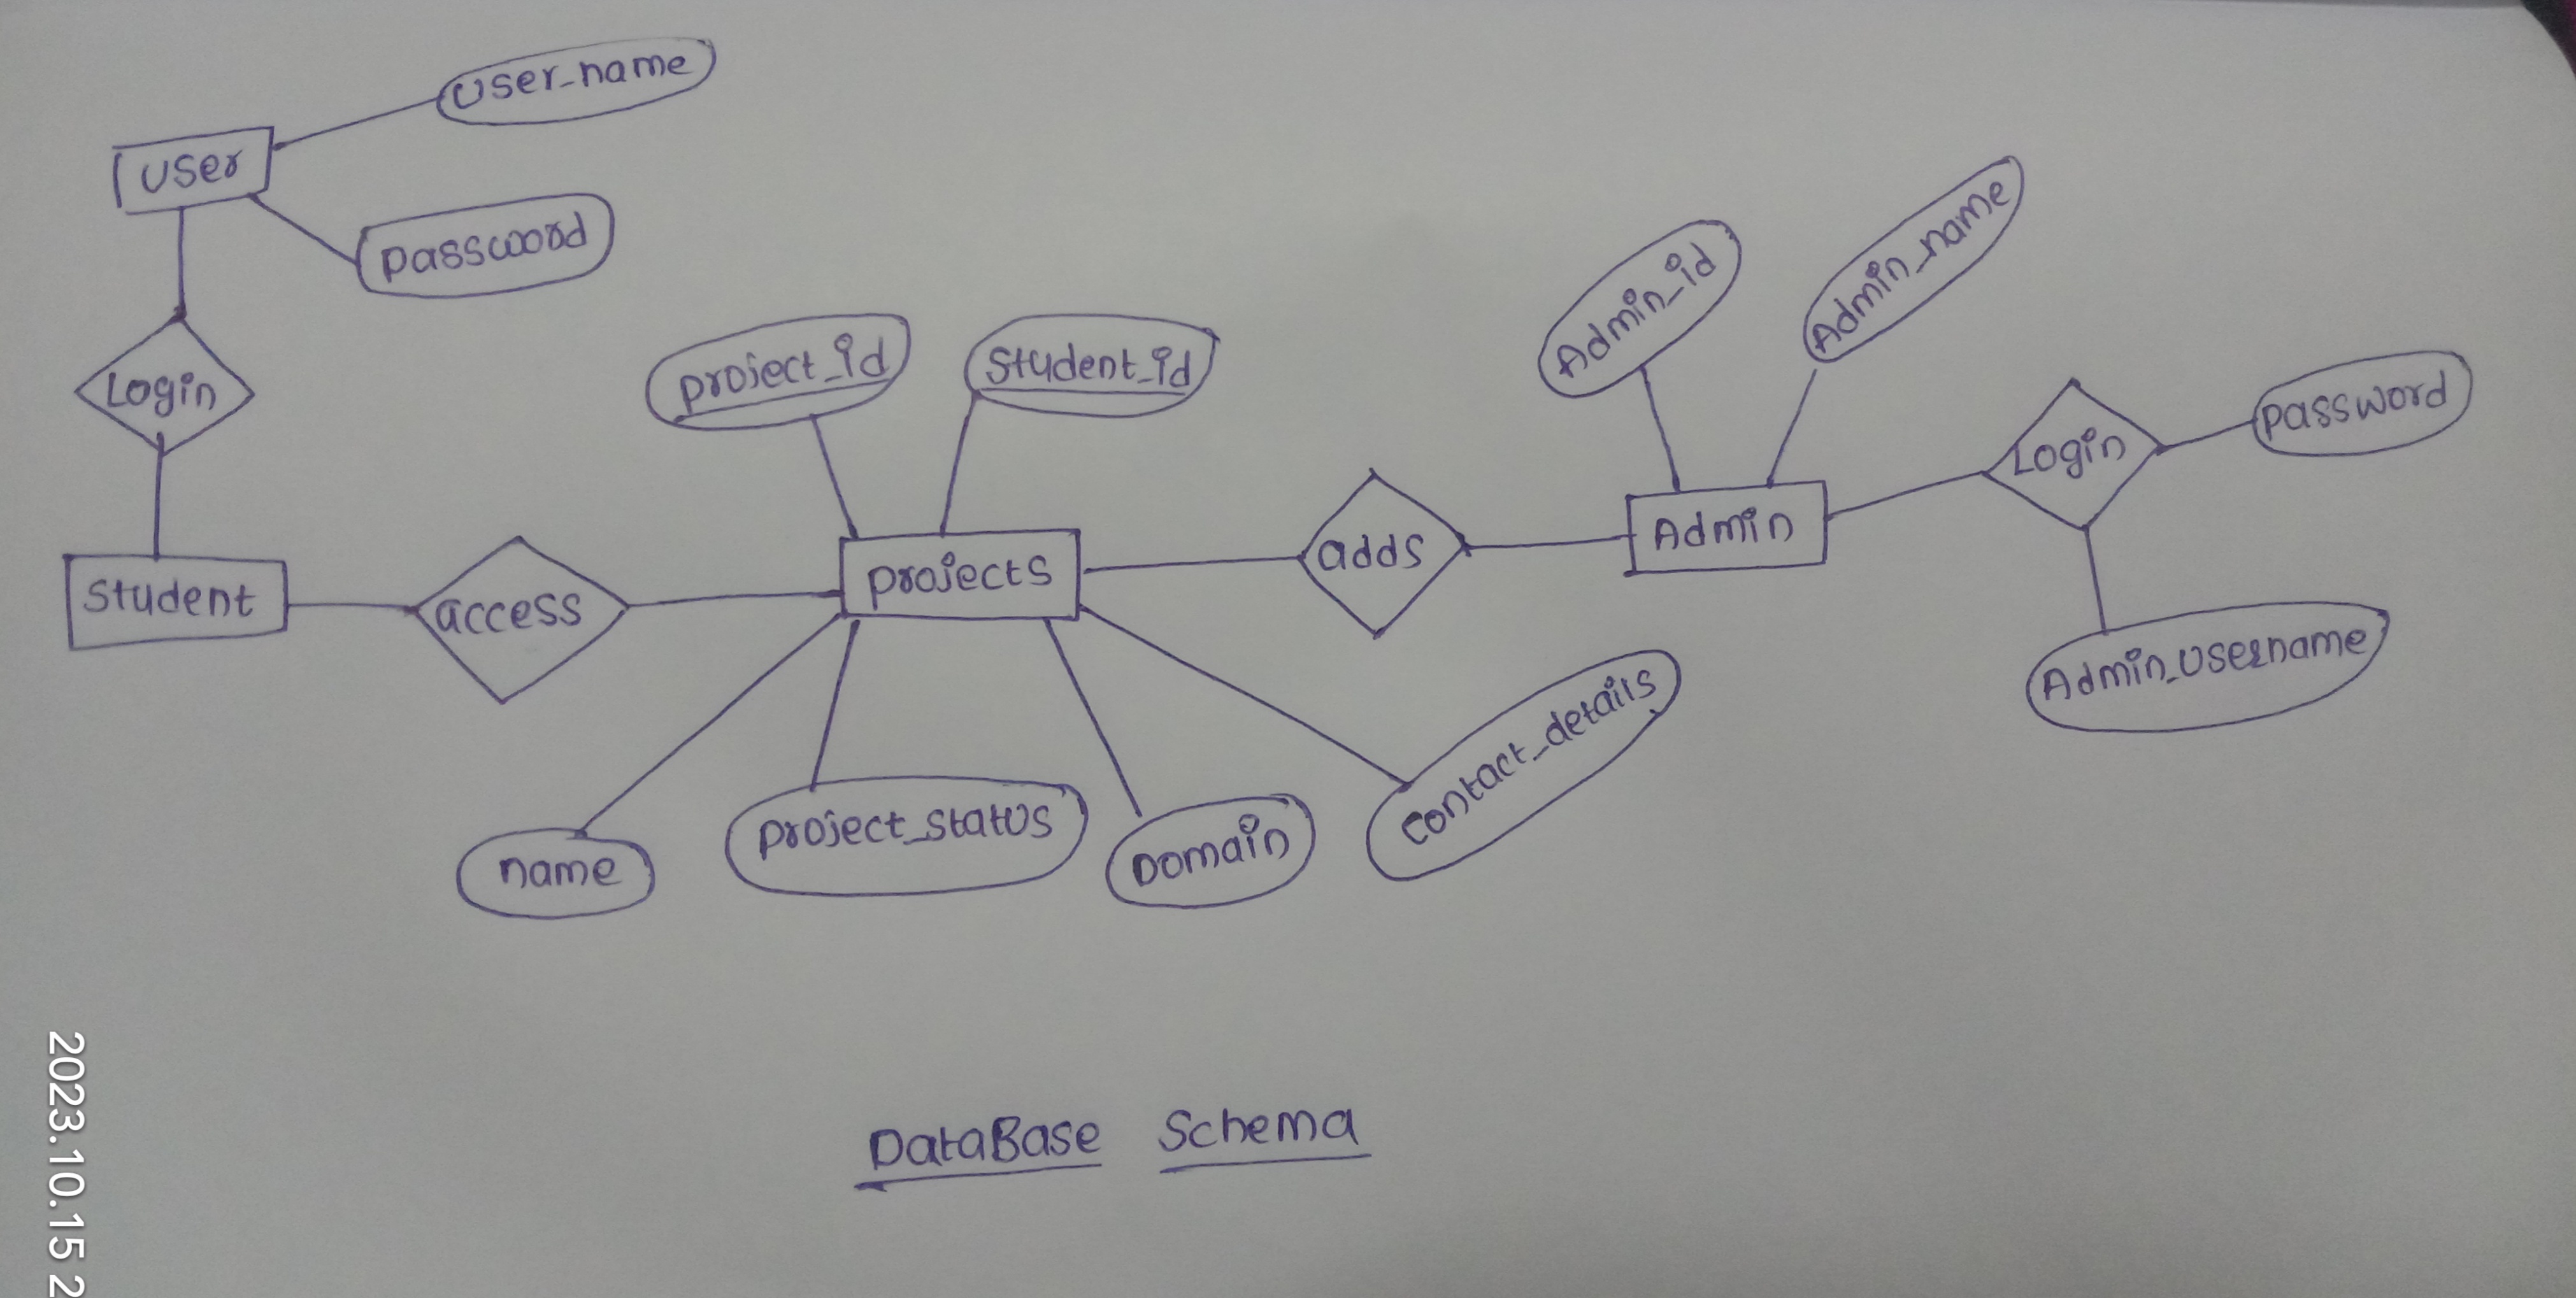 User_name
User
password
Login
Student
access
project_id
Student_id
projects
name
project_status
Domain
contact_details
adds
Admin_id
Admin_name
Admin
Login
password
Admin_Username
DataBase Schema
2023.10.15 2